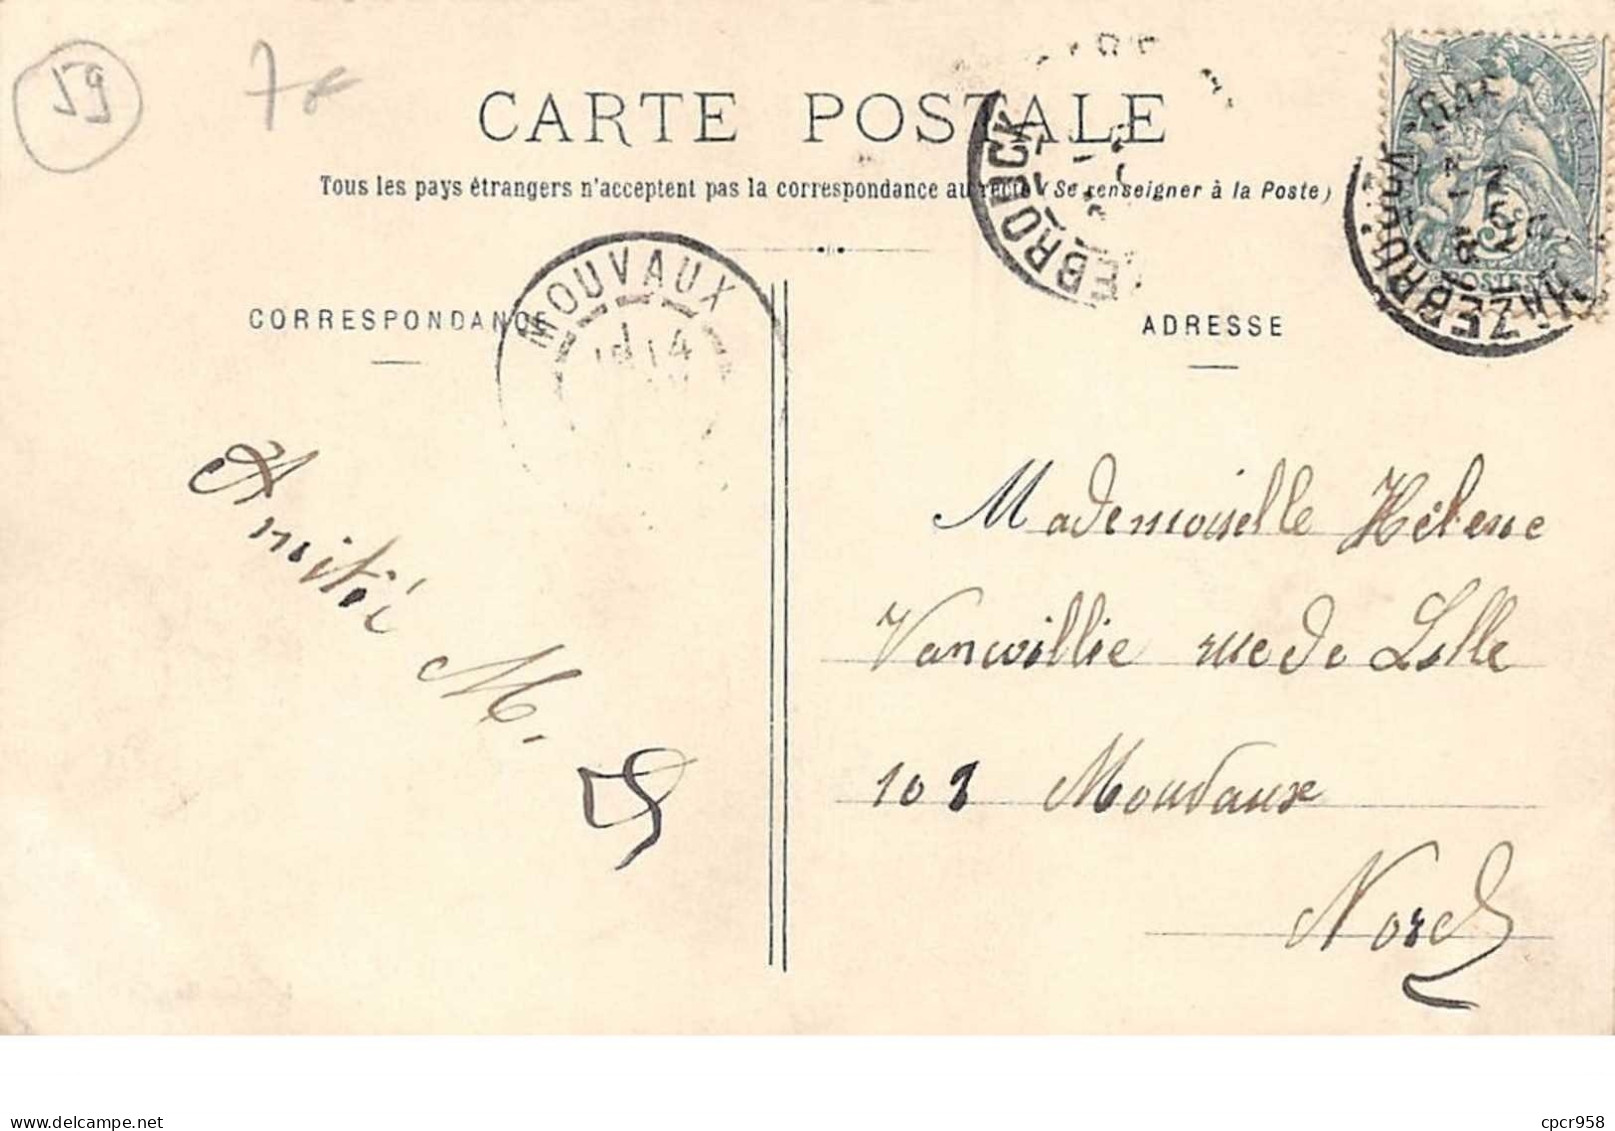 59
CARTE POSTALE
Tous les pays étrangers n'acceptent pas la correspondance au recto (Se renseigner à la Poste)
HAZEBROUCK
HAZEBROUCK
POSTES
MOUVAUX
14
CORRESPONDANCE
ADRESSE
Amitié
M.
Mademoiselle Hélène
Vanwillie rue de Lille
108 Mouvaux
Nord
delcampe.net
cpcr958